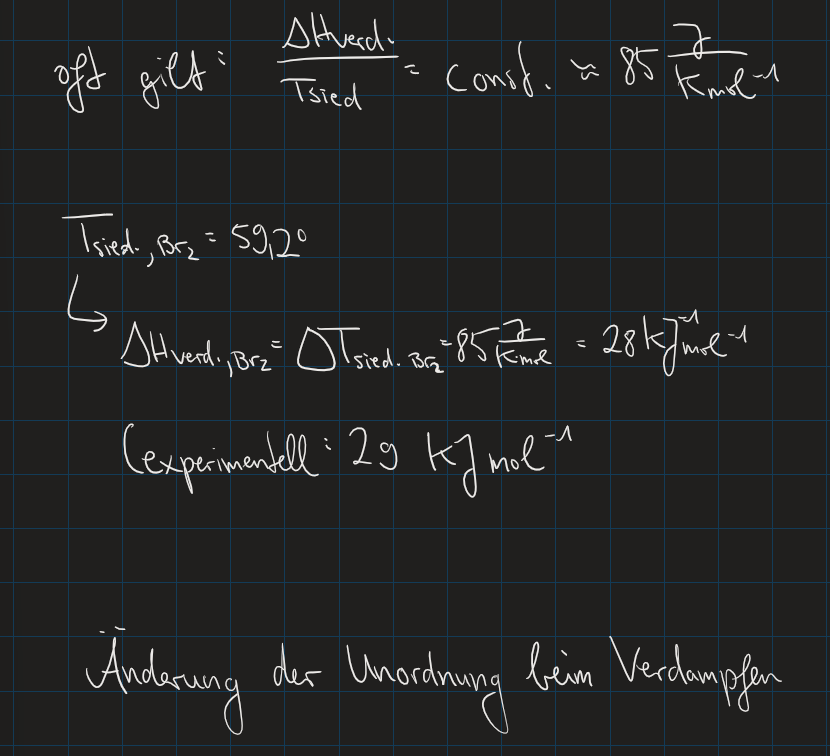 oft gilt: ΔHverd. / Tsied = const. ≈ 85 J / Kmol⁻¹
Tsied., Br₂ = 59,2°
↳ ΔHverd., Br₂ = ΔTsied. Br₂ = 85 J / K·mol = 28 kJ⁻¹ mol⁻¹
(experimentell: 29 KJ mol⁻¹
Änderung der Unordnung beim Verdampfen